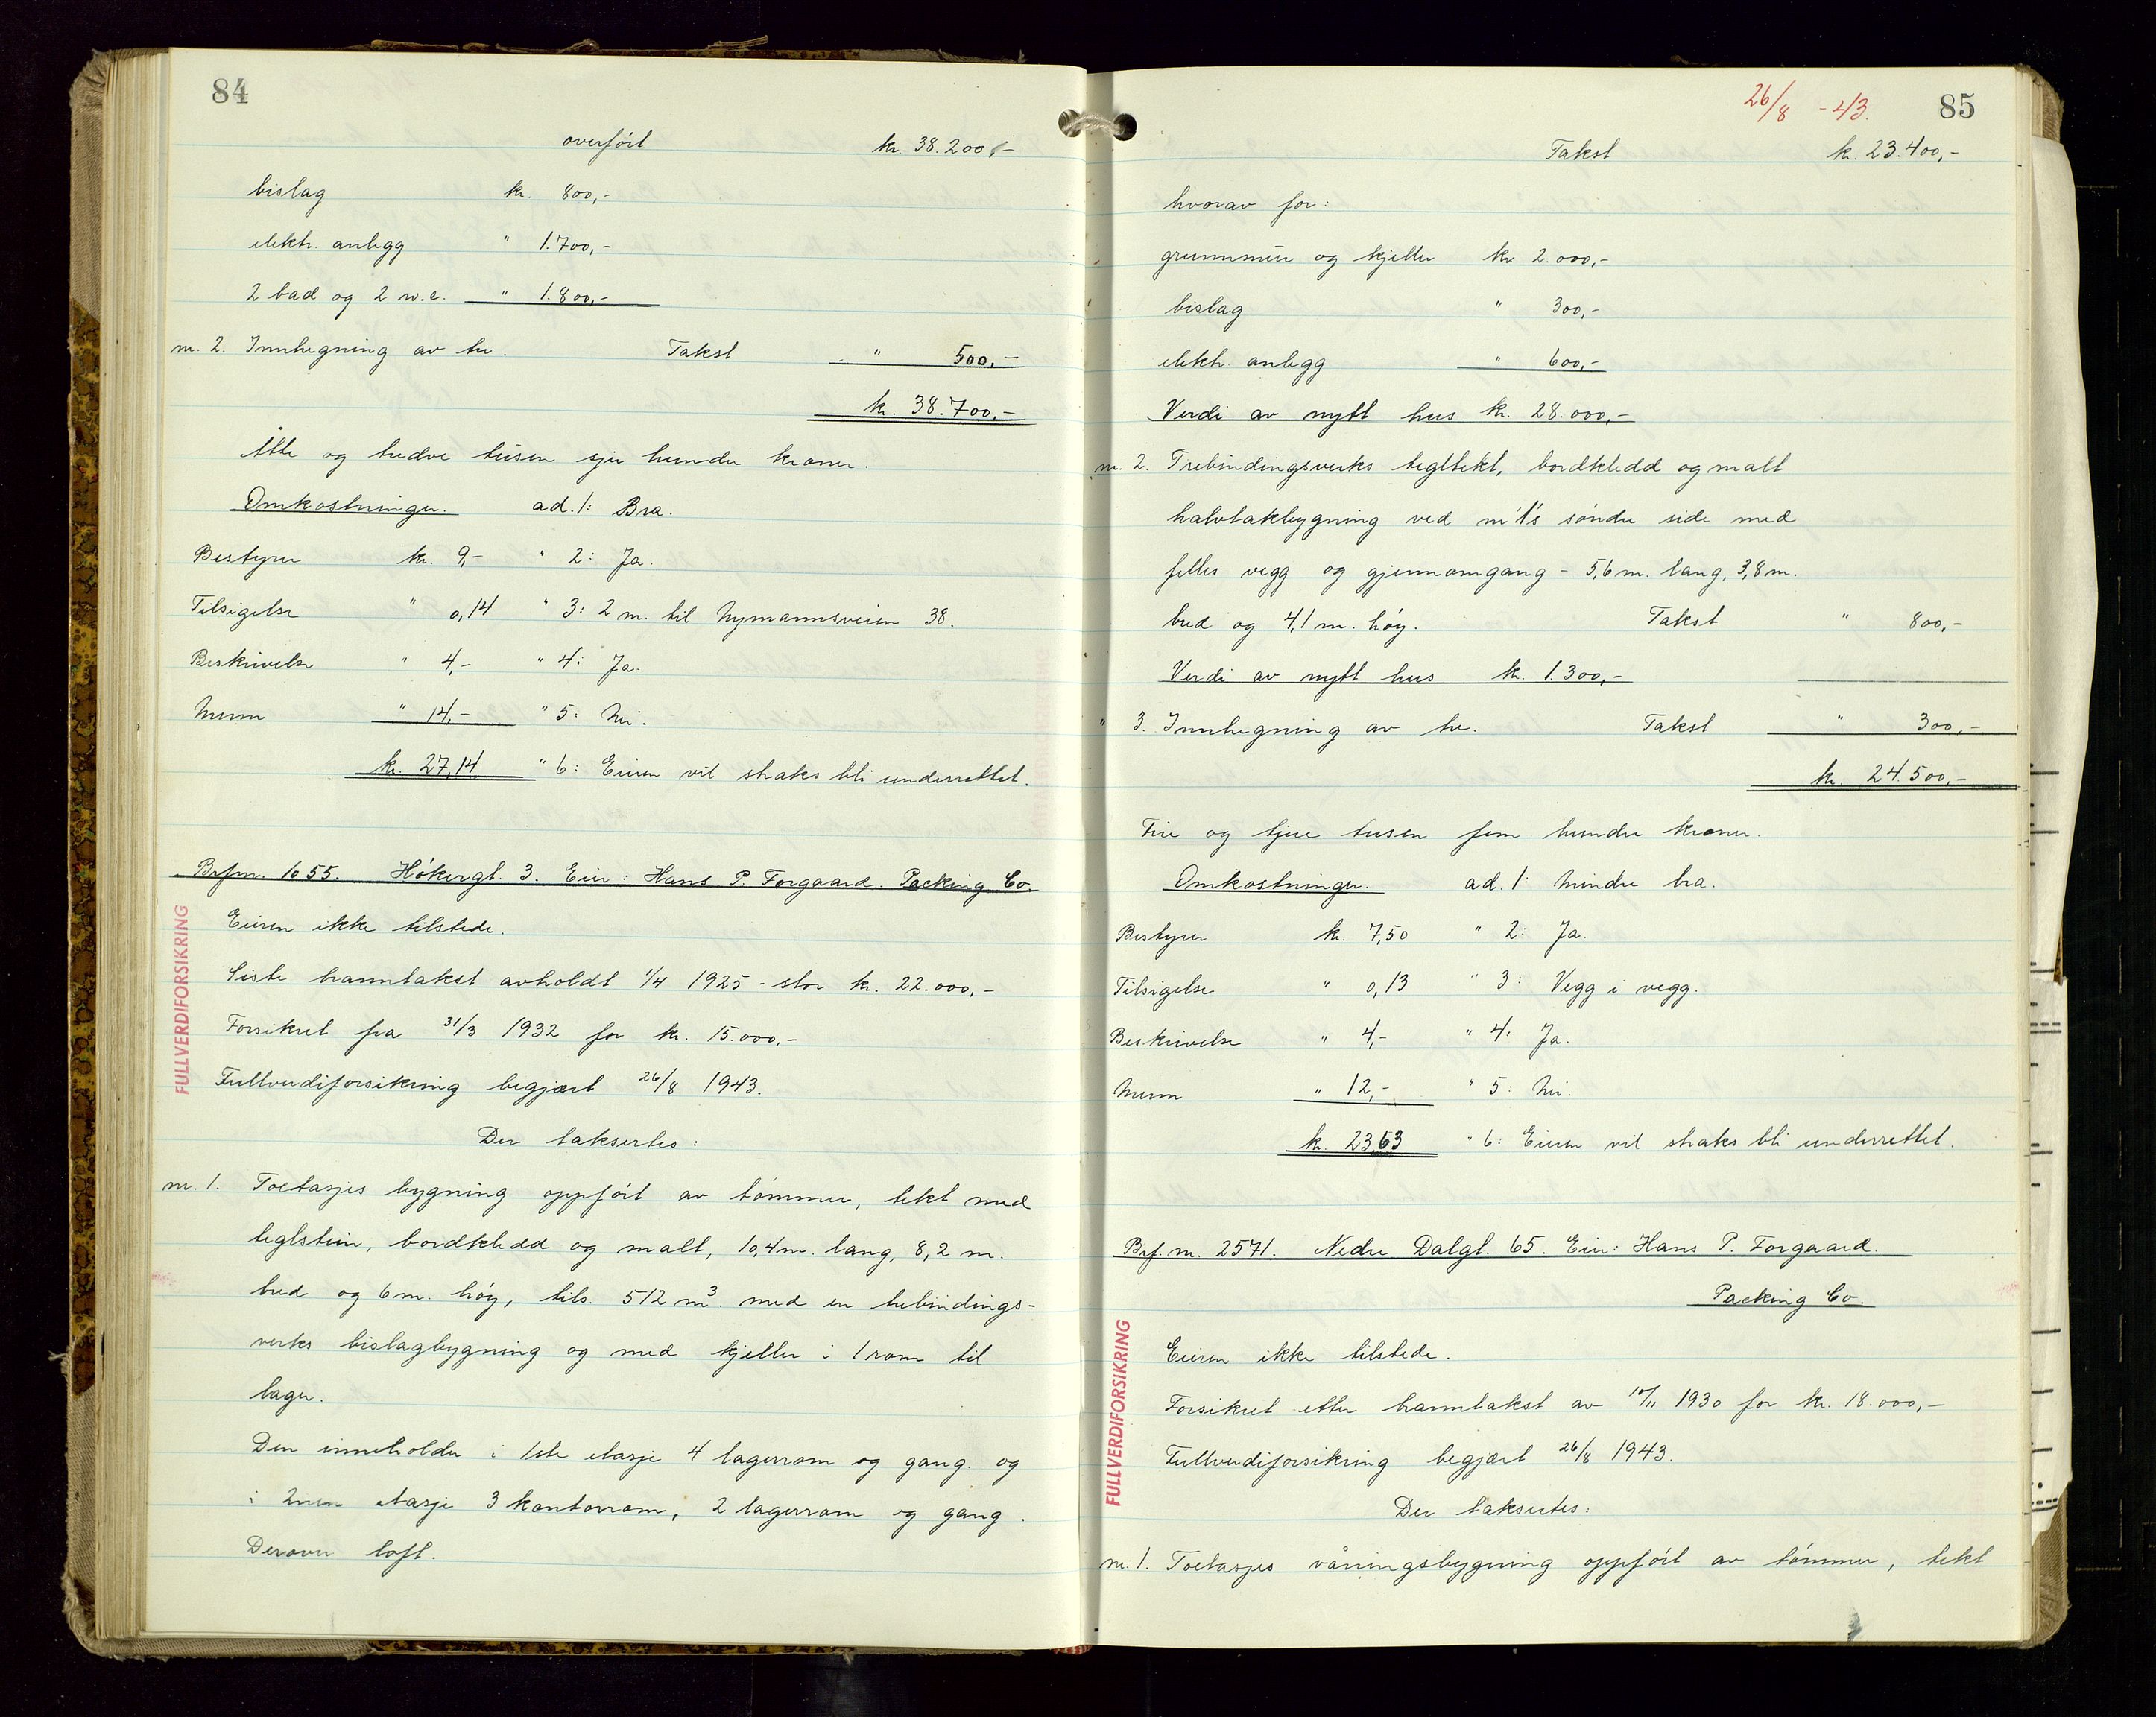 84
overført kr. 38.200,-
bislag kr. 800,-
elektr. anlegg " 1.700,-
2 bad og 2 w.c. " 1.800,-
nr. 2. Innhegning av tre. Takst " 500,-
kr. 38.700,-
Åtte og tredve tusen sju hundre kroner.
Omkostninger. ad. 1: Bra.
Bestyrer kr. 9,- " 2: Ja.
Tilsigelse " 0,14 " 3: 2 m. til Nymannsveien 38.
Beskrivelse " 4,- " 4: Ja.
Menn " 14,- " 5: Nei.
kr. 27,14 " 6: Eieren vil straks bli underrettet.
Brfnr. 1655. Hökergt. 3. Eier: Hans P. Forgaard. Packing Co
FULLVERDIFORSIKRING
Eieren ikke tilstede.
Siste branntakst avholdt 1/4 1925 - stor kr. 22.000,-
Forsikret fra 31/3 1932 for kr. 15.000,-
Fullverdiforsikring begjært 26/8 1943.
Der taksertes:
nr. 1. Toetasjes bygning oppført av tømmer, tekt med
teglstein, bordkledd og malt, 10,4 m. lang, 8,2 m.
bred og 6 m. høy, tils. 512 m³. med en trebindings-
verks bislagbygning og med kjeller i 1 rom til
lager.
Den inneholder i 1ste etasje 4 lagerrom og gang. og
i 2nen etasje 3 kontorrom, 2 lagerrom og gang.
Derover loft.
26/8 - 43. 85
Takst kr. 23.400,-
hvorav for:
grunnmur og kjeller kr 2.000,-
bislag " 300,-
elektr. anlegg " 600,-
Verdi av nytt hus kr. 28.000,-
nr. 2. Trebindingsverks tegltekt, bordkledd og malt
halvtakbygning ved nr 1's søndre side med
felles vegg og gjennomgang - 5,6 m. lang, 3,8 m.
bred og 4,1 m. høy. Takst " 800,-
Verdi av nytt hus kr. 1.300,-
" 3. Innhegning av tre. Takst " 300,-
kr. 24.500,-
Fire og tjue tusen fem hundre kroner.
Omkostninger. ad. 1: Mindre bra.
Bestyrer kr. 7,50 " 2: Ja.
Tilsigelse " 0,13 " 3: Vegg i vegg.
Beskrivelse " 4,- " 4: Ja.
Menn " 12,- " 5: Nei.
kr. 23,63 " 6: Eieren vil straks bli underrettet.
Brf. nr. 2571. Nedre Dalgt. 65. Eier: Hans P. Forgaard.
Packing Co.
FULLVERDIFORSIKRING
Eieren ikke tilstede.
Forsikret etter branntakst av 10/11 1930 for kr. 18.000,-
Fullverdiforsikring begjært 26/8 1943.
Der taksertes:
nr. 1. Toetasjes våningsbygning oppført av tømmer, tekt